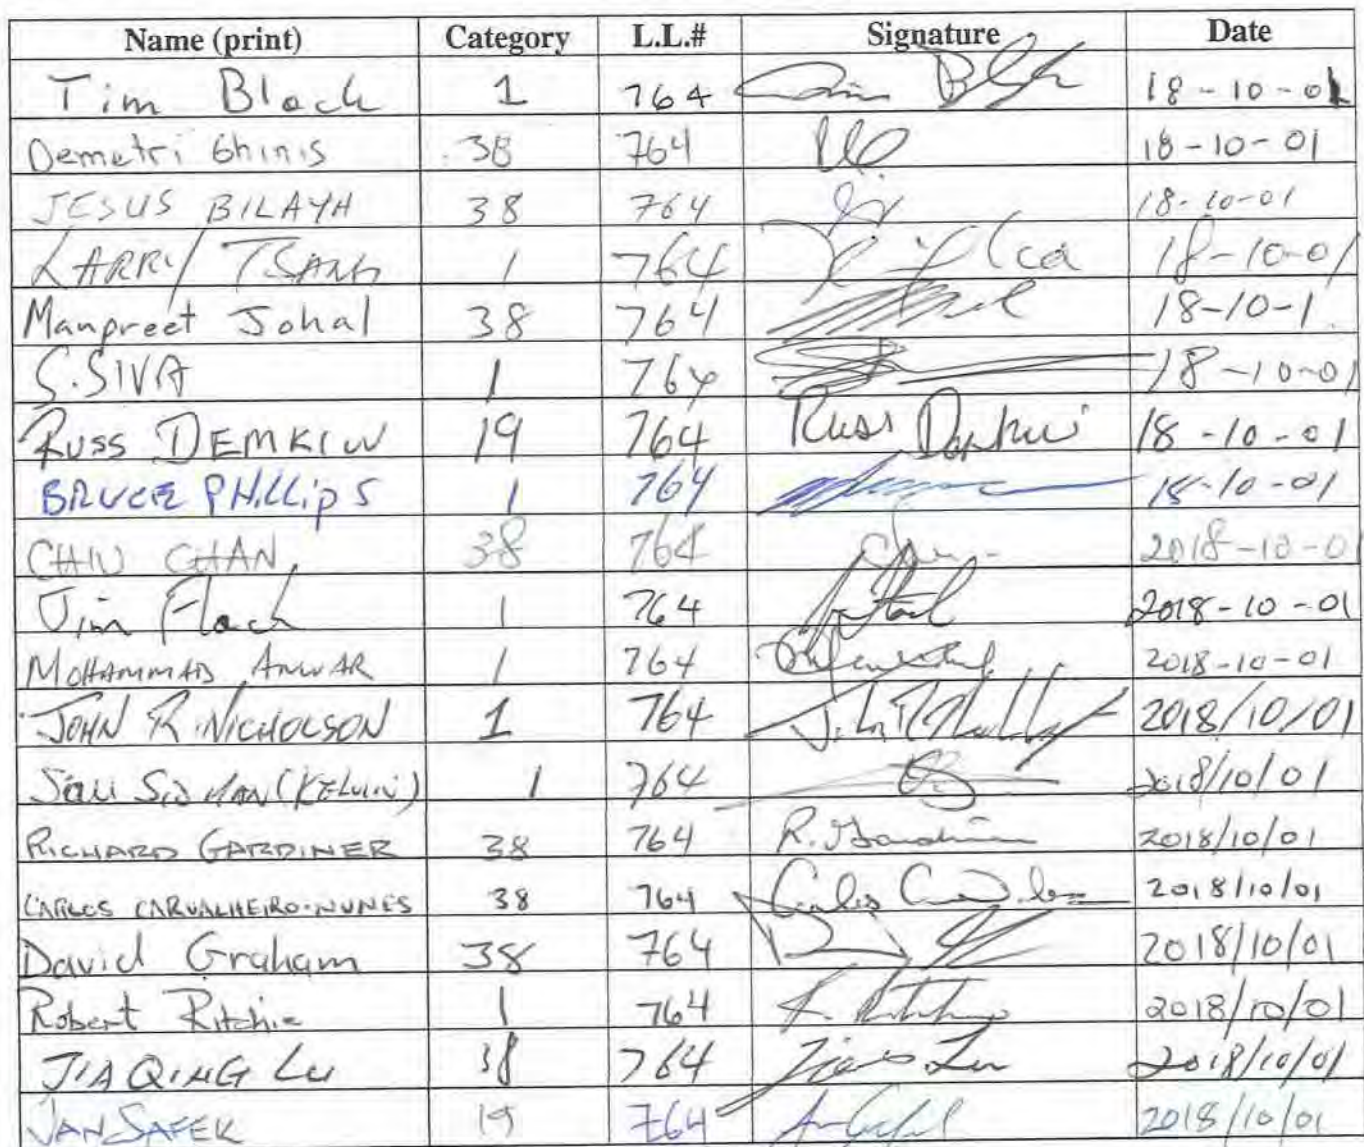 Name (print) Category L.L.# Signature Date
Tim Block 1 764 18-10-01
Demetri Ghinis 38 764 18-10-01
JESUS BILAYA 38 764 18-10-01
LARRY TSANG 1 764 18-10-01
Manpreet Johal 38 764 18-10-1
S.SIVA 1 764 18-10-01
RUSS DEMKIW 19 764 Russ 18-10-01
BRUCE PHILLIPS 1 764 18-10-01
CHIU CHAN 38 764 2018-10-0
Jim Flach 1 764 2018-10-01
MOHAMMAD ANWAR 1 764 2018-10-01
JOHN R. NICHOLSON 1 764 2018/10/01
(KELVIN) 1 764 2018/10/01
RICHARD GARDINER 38 764 R. Gardiner 2018/10/01
CARLOS CARVALHEIRO-NUNES 38 764 Carlos 2018/10/01
David Graham 38 764 2018/10/01
Robert Ritchie 1 764 R. Ritchie 2018/10/01
JIA QING Lu 38 764 2018/10/01
SAFER 19 764 2018/10/01